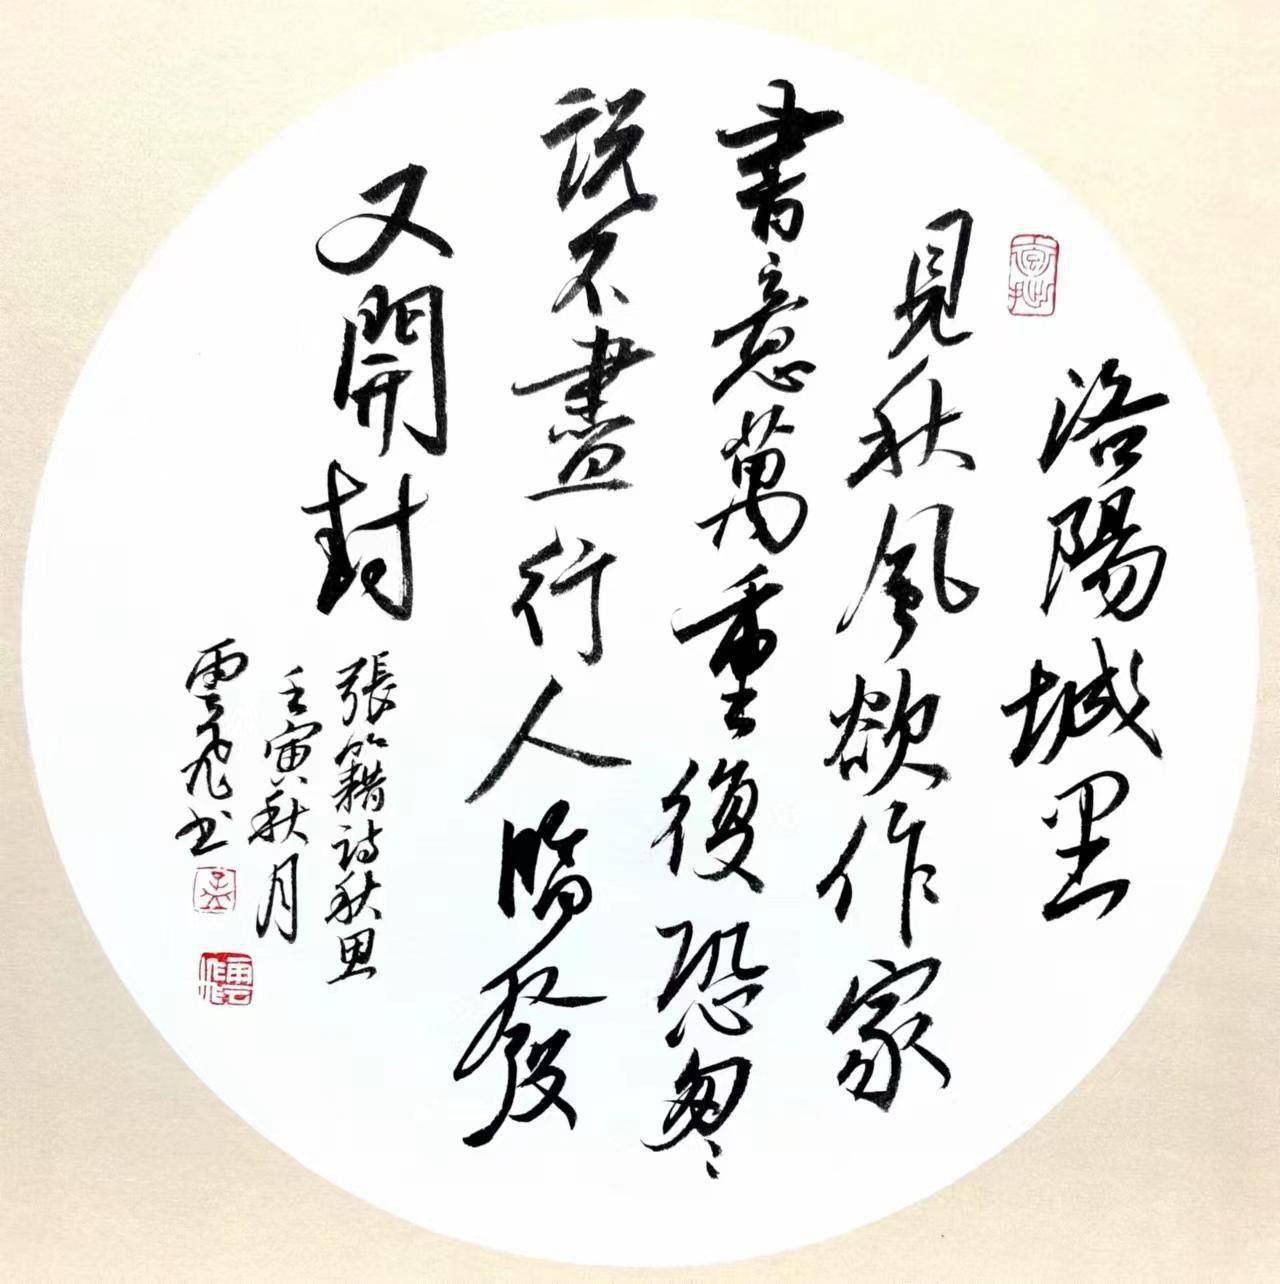 洛陽城里
見秋風欲作家
書意萬重復恐怱〻
説不盡行人臨發
又開封
張籍詩秋思
壬寅秋月
雲飛书